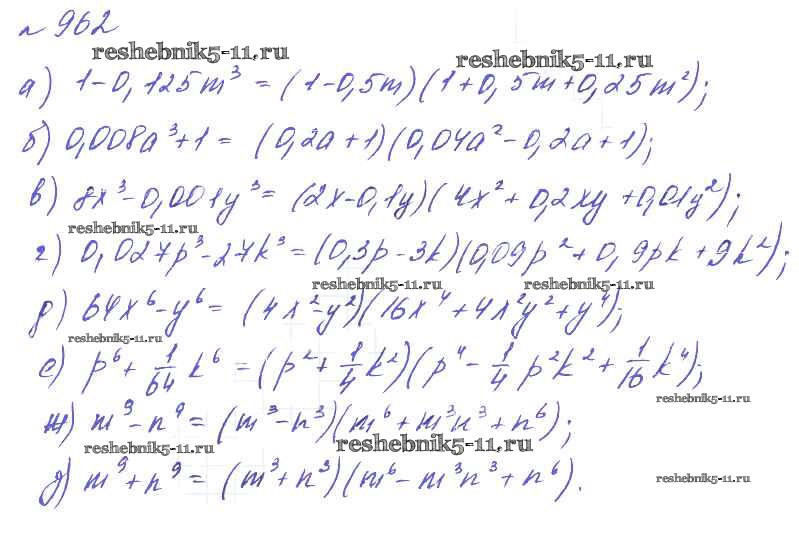 № 962
reshebnik5-11.ru
reshebnik5-11.ru
а) 1-0,125m³ = (1-0,5m)(1+0,5m+0,25m²);
б) 0,008a³+1 = (0,2a+1)(0,04a²-0,2a+1);
в) 8x³-0,001y³ = (2x-0,1y)(4x²+0,2xy+0,01y²);
reshebnik5-11.ru
г) 0,027p³-27k³ = (0,3p-3k)(0,09p²+0,9pk+9k²);
reshebnik5-11.ru
reshebnik5-11.ru
д) 64x⁶-y⁶ = (4x²-y²)(16x⁴+4x²y²+y⁴);
reshebnik5-11.ru
е) p⁶+1/64 k⁶ = (p²+1/4 k²)(p⁴-1/4 p²k²+1/16 k⁴);
reshebnik5-11.ru
ж) m⁹-n⁹ = (m³-n³)(m⁶+m³n³+n⁶);
reshebnik5-11.ru
reshebnik5-11.ru
з) m⁹+n⁹ = (m³+n³)(m⁶-m³n³+n⁶).
reshebnik5-11.ru